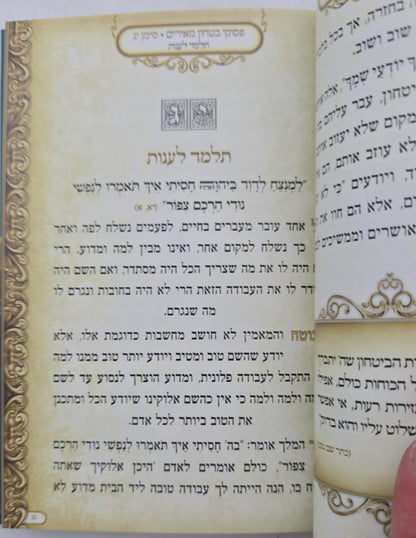 פסוקי בטחון מאירים • סימן יג
תלמד לענות
תלמד לענות
"לַמְנַצֵּחַ לְדָוִד בַּיהוָה חָסִיתִי אֵיךְ תֹּאמְרוּ לְנַפְשִׁי
נוּדִי הַרְכֶם צִפּוֹר" (יא, א)
אחד עובר מעברים בחיים, לפעמים נשלח לפה ואחר
כך נשלח למקום אחר, ואינו מבין למה ומדוע. הרי
היה לו את מה שצריך הכל היה מסתדר, ואם השם היה
לו את העבודה הזאת הרי לא היה בחובות ונגרם
מה שנגרם.
והמאמין לא חושב מחשבות כדוגמת אלו, אלא
יודע שהשם טוב ומטיב ויודע יותר טוב ממנו למה
התקבל לעבודה פלונית, ומדוע הוצרך לנסוע עד לשם
ולמה ולמה כי אין כהשם אלוקינו שיודע הכל ומתכנן
את הטוב ביותר לכל אדם.
המלך אומר: "בה' חָסִיתִי אֵיךְ תֹּאמְרוּ לְנַפְשִׁי נוּדִי הַרְכֶם
צִפּוֹר", כולם אומרים לאדם "היכן אלוקיך שאתה
בו, הנה הייתה לך עבודה טובה ליד הבית מדוע לא
בחזרה, אך בכל
שוב ושוב.
יוֹדְעֵי שְׁמֶךָ",
עבר עליהם
מקום שלא יעזוב
לא עוזב אותם,
ויודעים "כי לא
אלא הם חוו את
מאושרים וממשיכים
הבטחון שה' יתברך
הכוחות כולם,
גזירות רעות, אי אפשר
לשלוט עליו והוא ברוך